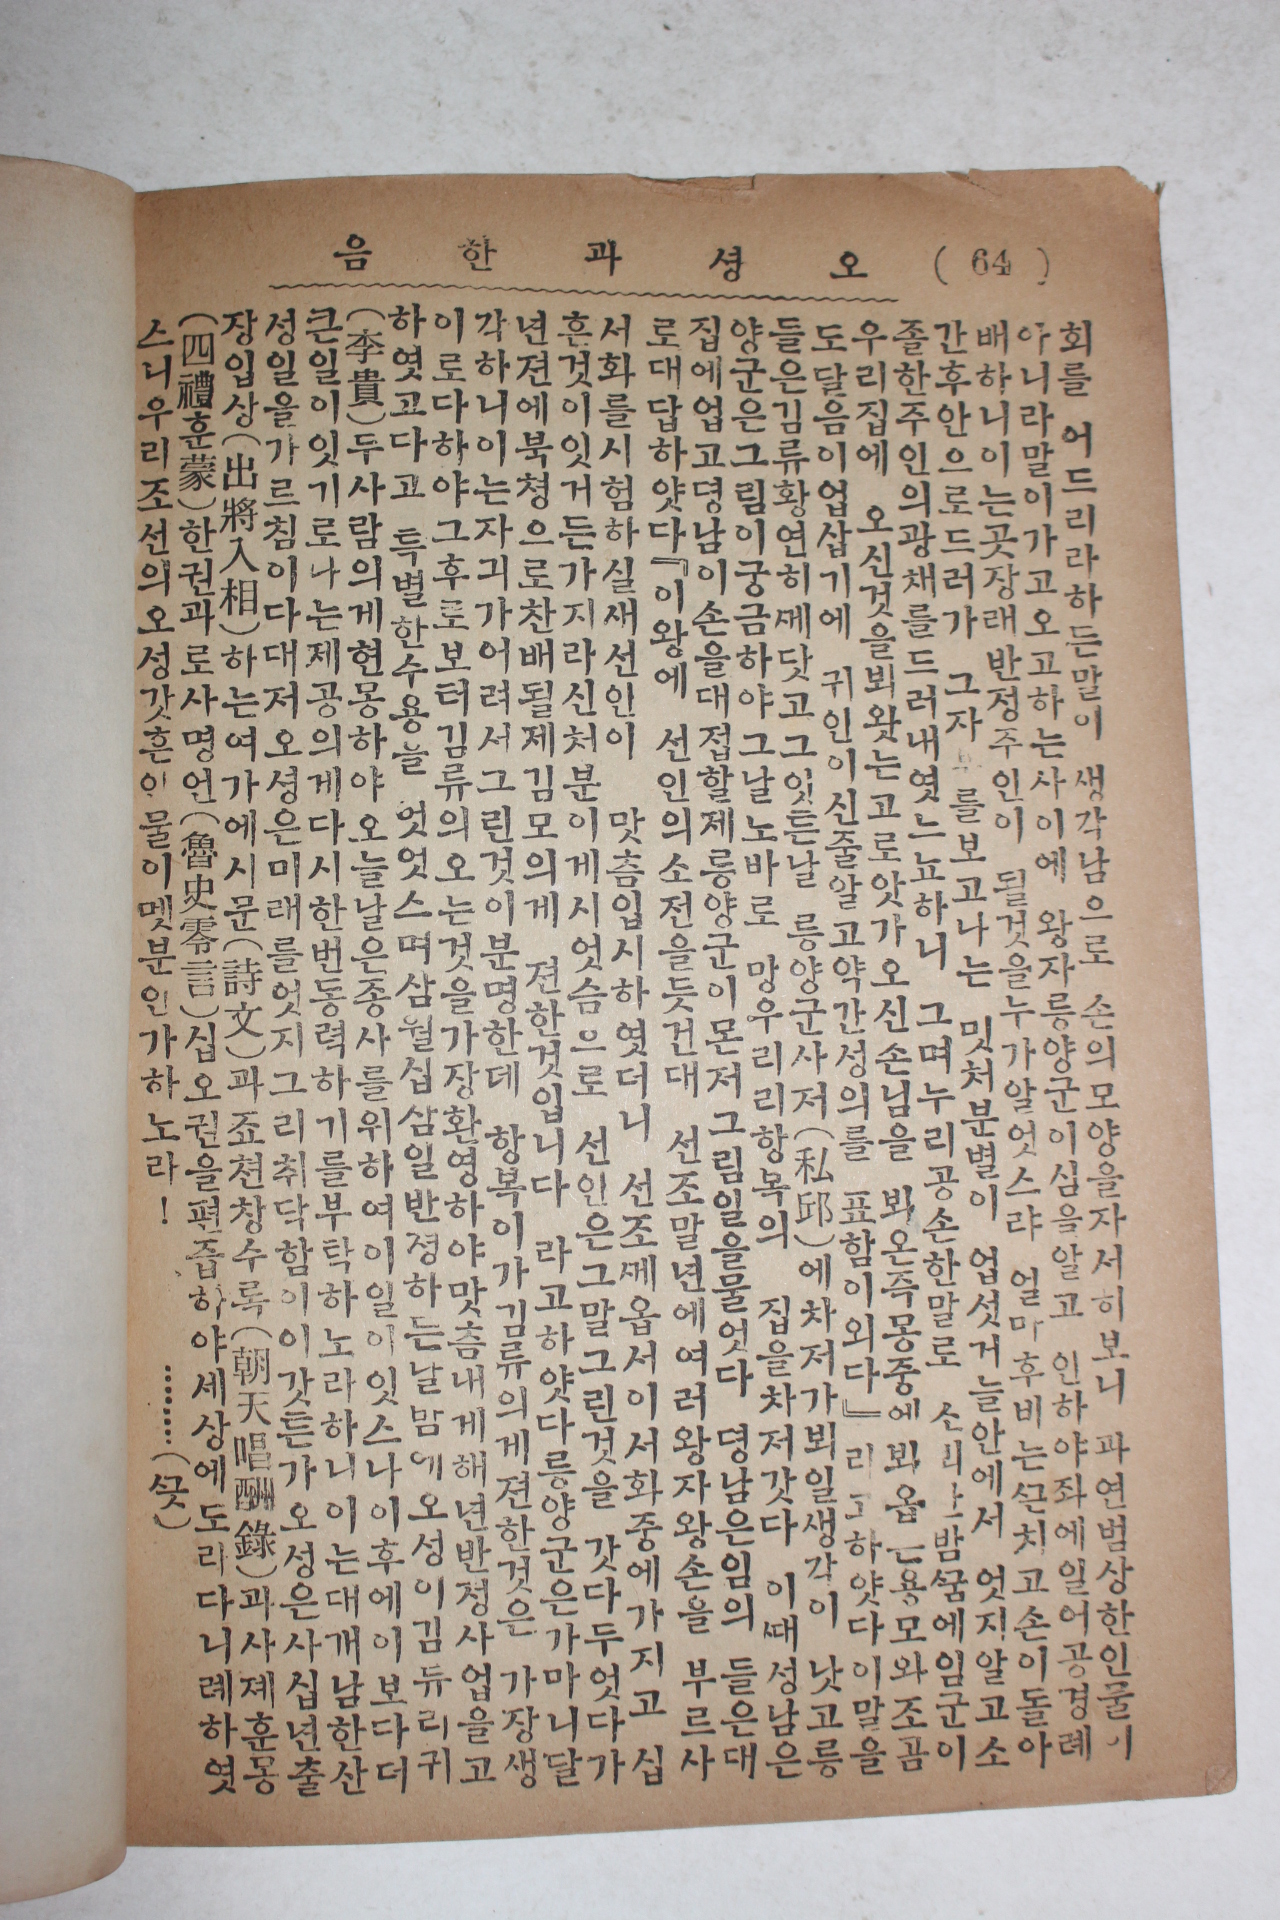 (64) 오셩과한음
회를 어드리라하든말이 생각남으로 손의모양을자서히보니 과연범상한인물이
아니라말이가고오고하는사이에 왕자릉양군이심을알고 인하야좌에일어공경례
배하니이는곳장래반정주인이 될것을누가알엇스랴 얼마후비는끈치고손이돌아
간후안으로드러가 그자 를보고나는 밋처분별이 업섯거늘안에서 엇지알고소
졸한주인의광채를드러내엿느뇨하니 그며누리공손한말로 밤꿈에임군이
우리집에 오신것을뵈왓는고로앗가오신손님을 뵈온즉몽중에뵈옵든용모와조곰
도달음이업삽기에 귀인이신줄알고약간성의를 표함이외다』라고하얏다이말을
들은김류황연히깨닷고그잇튼날 릉양군사저(私邸)에차저가뵈일생각이 낫고릉
양군은그림이궁금하야그날노바로 망우리리항복의 집을차저갓다 이때성남은
집에업고뎡남이손을대접할제릉양군이몬저그림일을물엇다 뎡남은임의 들은대
로대답하얏다『이왕에 선인의소전을듯건대 선조말년에여러왕자왕손을 부르사
서화를시험하실새선인이 맛츰입시하엿더니 선조께옵서이서화중에가지고 십
흔것이잇거든가지라신처분이게시엇슴으로 선인은그말그린것을 갓다두엇다가
년젼에북청으로찬배될제김모의게 젼한것입니다 라고하얏다릉양군은가마니달
각하니이는자긔가어려서그린것이분명한데 항복이가김류의게젼한것은 가장생
이로다하야그후로보터김류의오는것을가장환영하야맛츰내게해년반정사업을고
하엿고다고 특별한수용늘 엇엇스며삼월십삼일반졍하든날밤에오성이김듀리귀
(李貴)두사람의게현몽하야오늘날은종사를위하여이일이잇스나이후에이보다더
큰일이잇기로나는제공의게다시한번동력하기를부탁하노라하니이는대개남한산
성일을가르침이다대저오셩은미래를엇지그리취닥함이이갓튼가오성은사십년출
장입상(出將入相)하는여가에시문(詩文)과죠쳔창수록(朝天唱酬錄)과사졔훈몽
(四禮훈蒙)한권과로사명언(魯史零言)십오권을편즙하야세상에도라다니례하엿
스니우리조선의오성갓흔인물이몟분인가하노라! ………(끗)